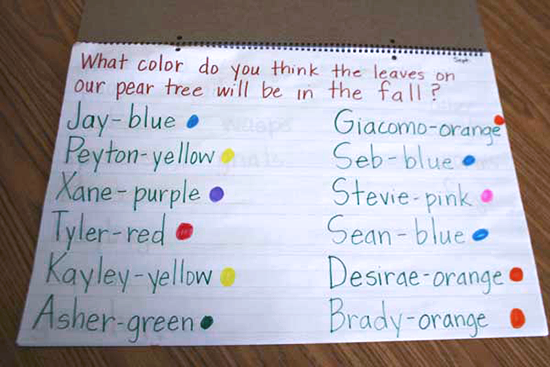 Sept.
What color do you think the leaves on
our pear tree will be in the fall?
Jay-blue
Peyton-yellow
Xane-purple
Tyler-red
Kayley-yellow
Asher-green
Giacomo-orange
Seb-blue
Stevie-pink
Sean-blue
Desirae-orange
Brady-orange